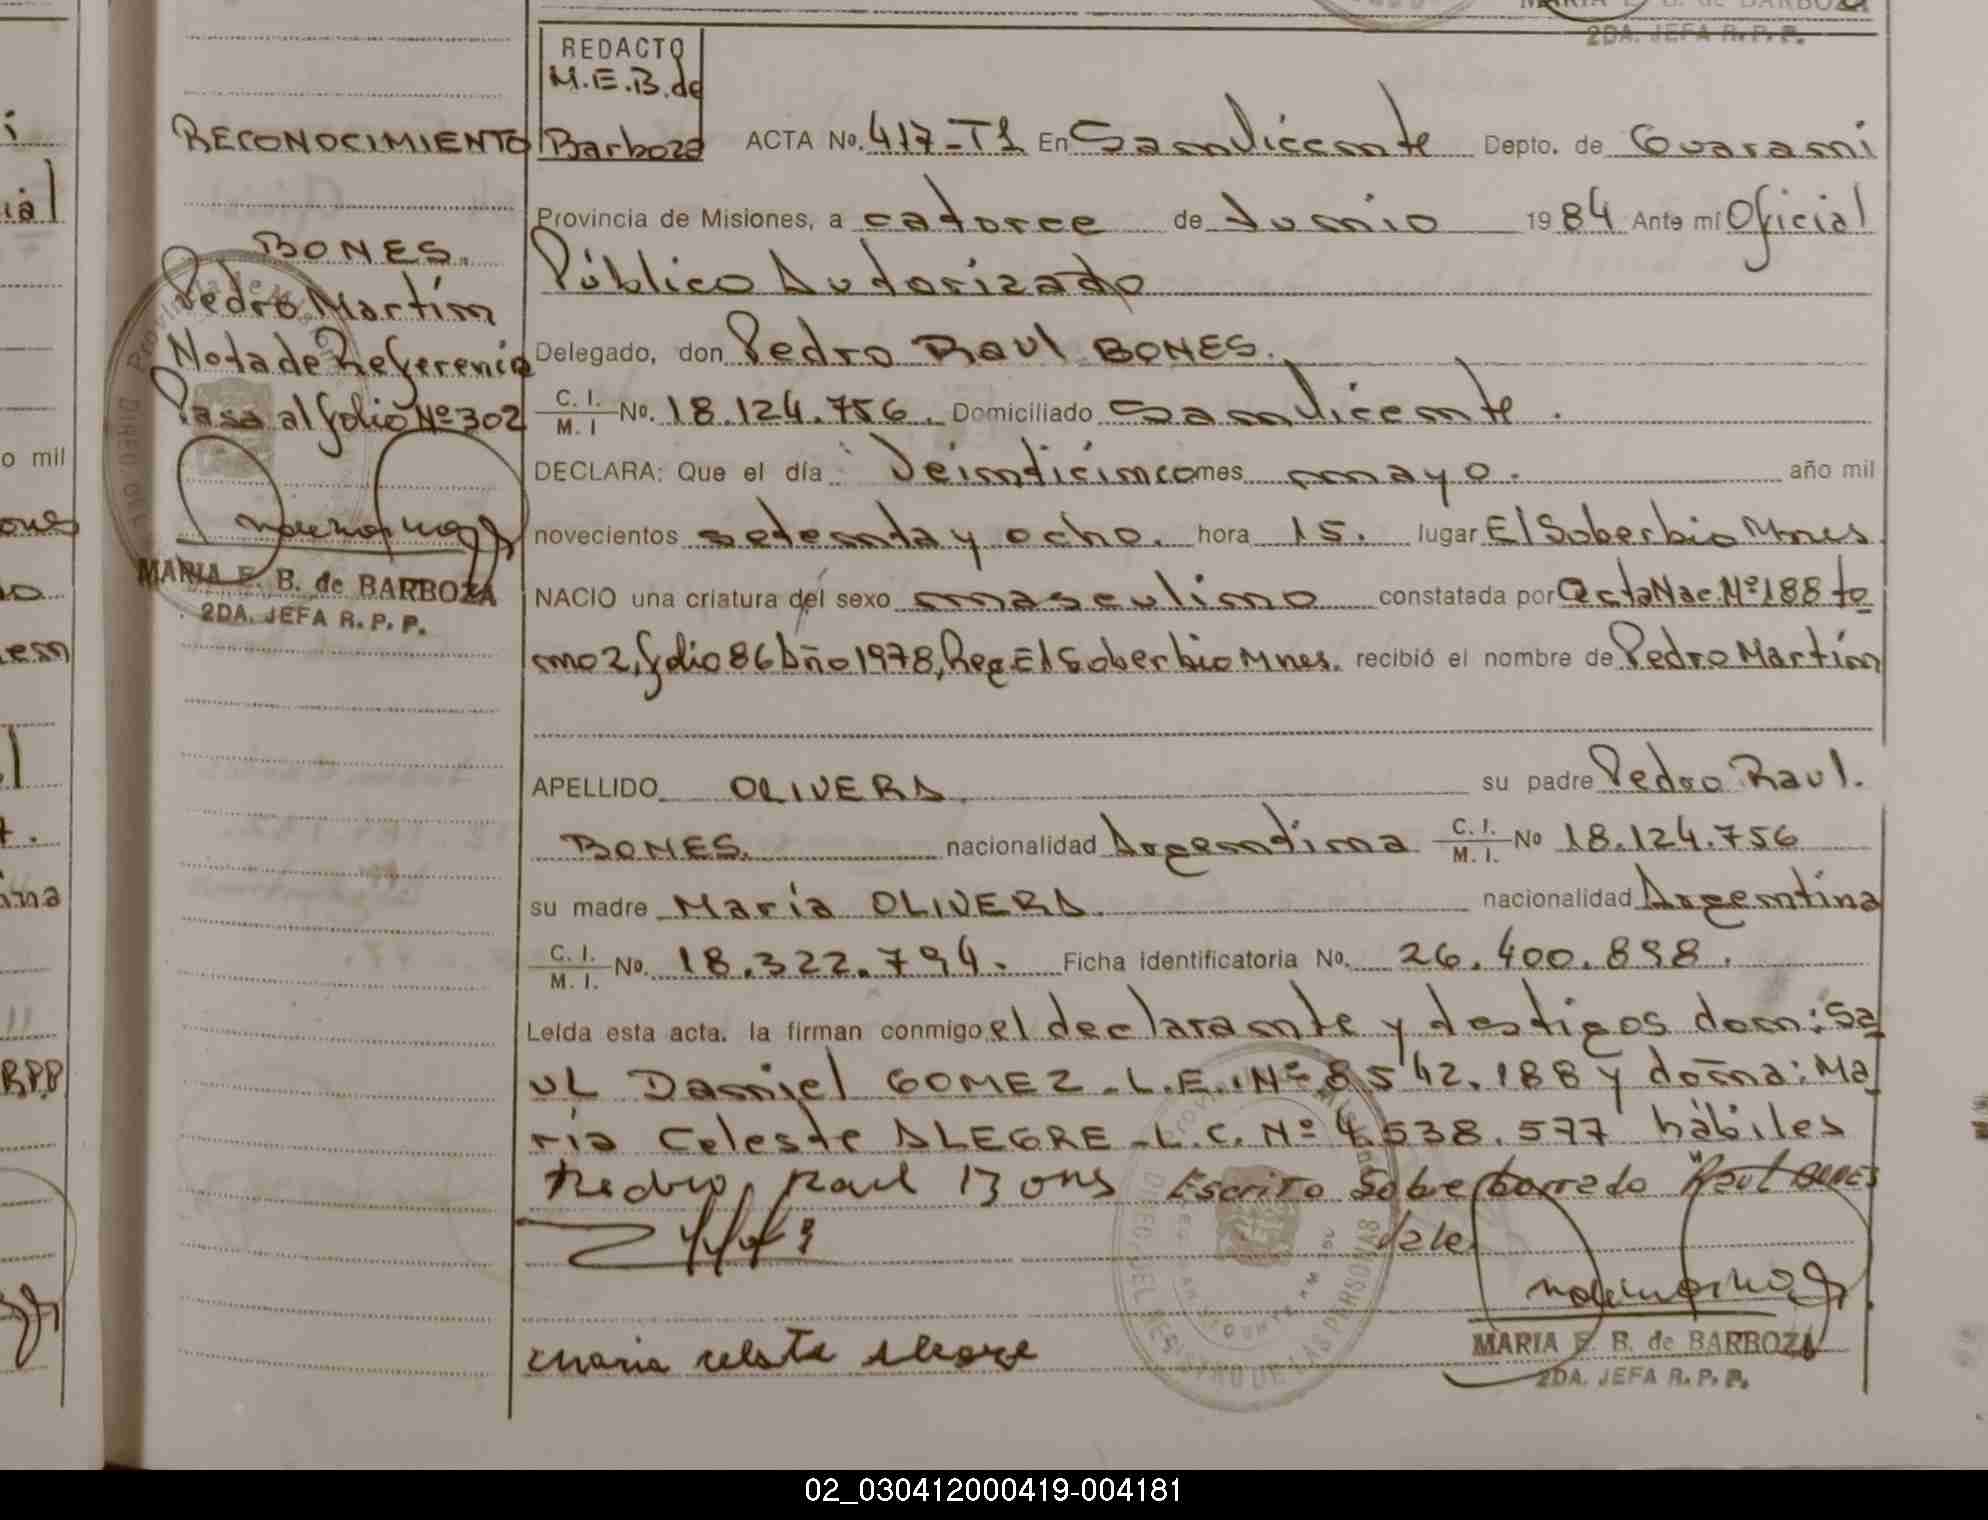 MARIA E. B. de BARBOZA
2DA. JEFA R. P. P.
RECONOCIMIENTO
BONES.
Pedro Martín
Nota de Referencia
Pasa al folio Nº 302
MARIA E. B. de BARBOZA
2DA. JEFA R. P. P.
REDACTO
M.E.B. de
Barboza
ACTA No. 417-T1 En San Vicente Depto. de Guarani
Provincia de Misiones, a catorce de Junio 1984 Ante mí Oficial
Público Autorizado
Delegado, don Pedro Raul BONES.
C. I. M. I No. 18.124.756. Domiciliado San Vicente.
DECLARA: Que el día Veinticinco mes mayo. año mil
novecientos setenta y ocho. hora 15. lugar El Soberbio Mnes.
NACIO una criatura del sexo masculino constatada por Acta Nac. Nº 188 to
mo 2, folio 86 Año 1978, Reg. El Soberbio Mnes. recibió el nombre de Pedro Martín
APELLIDO OLIVERA su padre Pedro Raul.
BONES. nacionalidad Argentina C. I. M. I. No 18.124.756
su madre María OLIVERA. nacionalidad Argentina
C. I. M. I. No. 18.322.794. Ficha identificatoria No. 26.400.898.
Leída esta acta. la firman conmigo, el declarante y testigos don: Sa
uL Daniel GOMEZ - L.E. Nº 8542.188 y doña: Ma
ría Celeste ALEGRE - L.C. Nº 4.538.577 hábiles
Pedro Raul Bons Escrito Sobre borrado "Raul BONES
Vale.
maria celeste alegre
MARIA E. B. de BARBOZA
2DA. JEFA R. P. P.
02_030412000419-004181